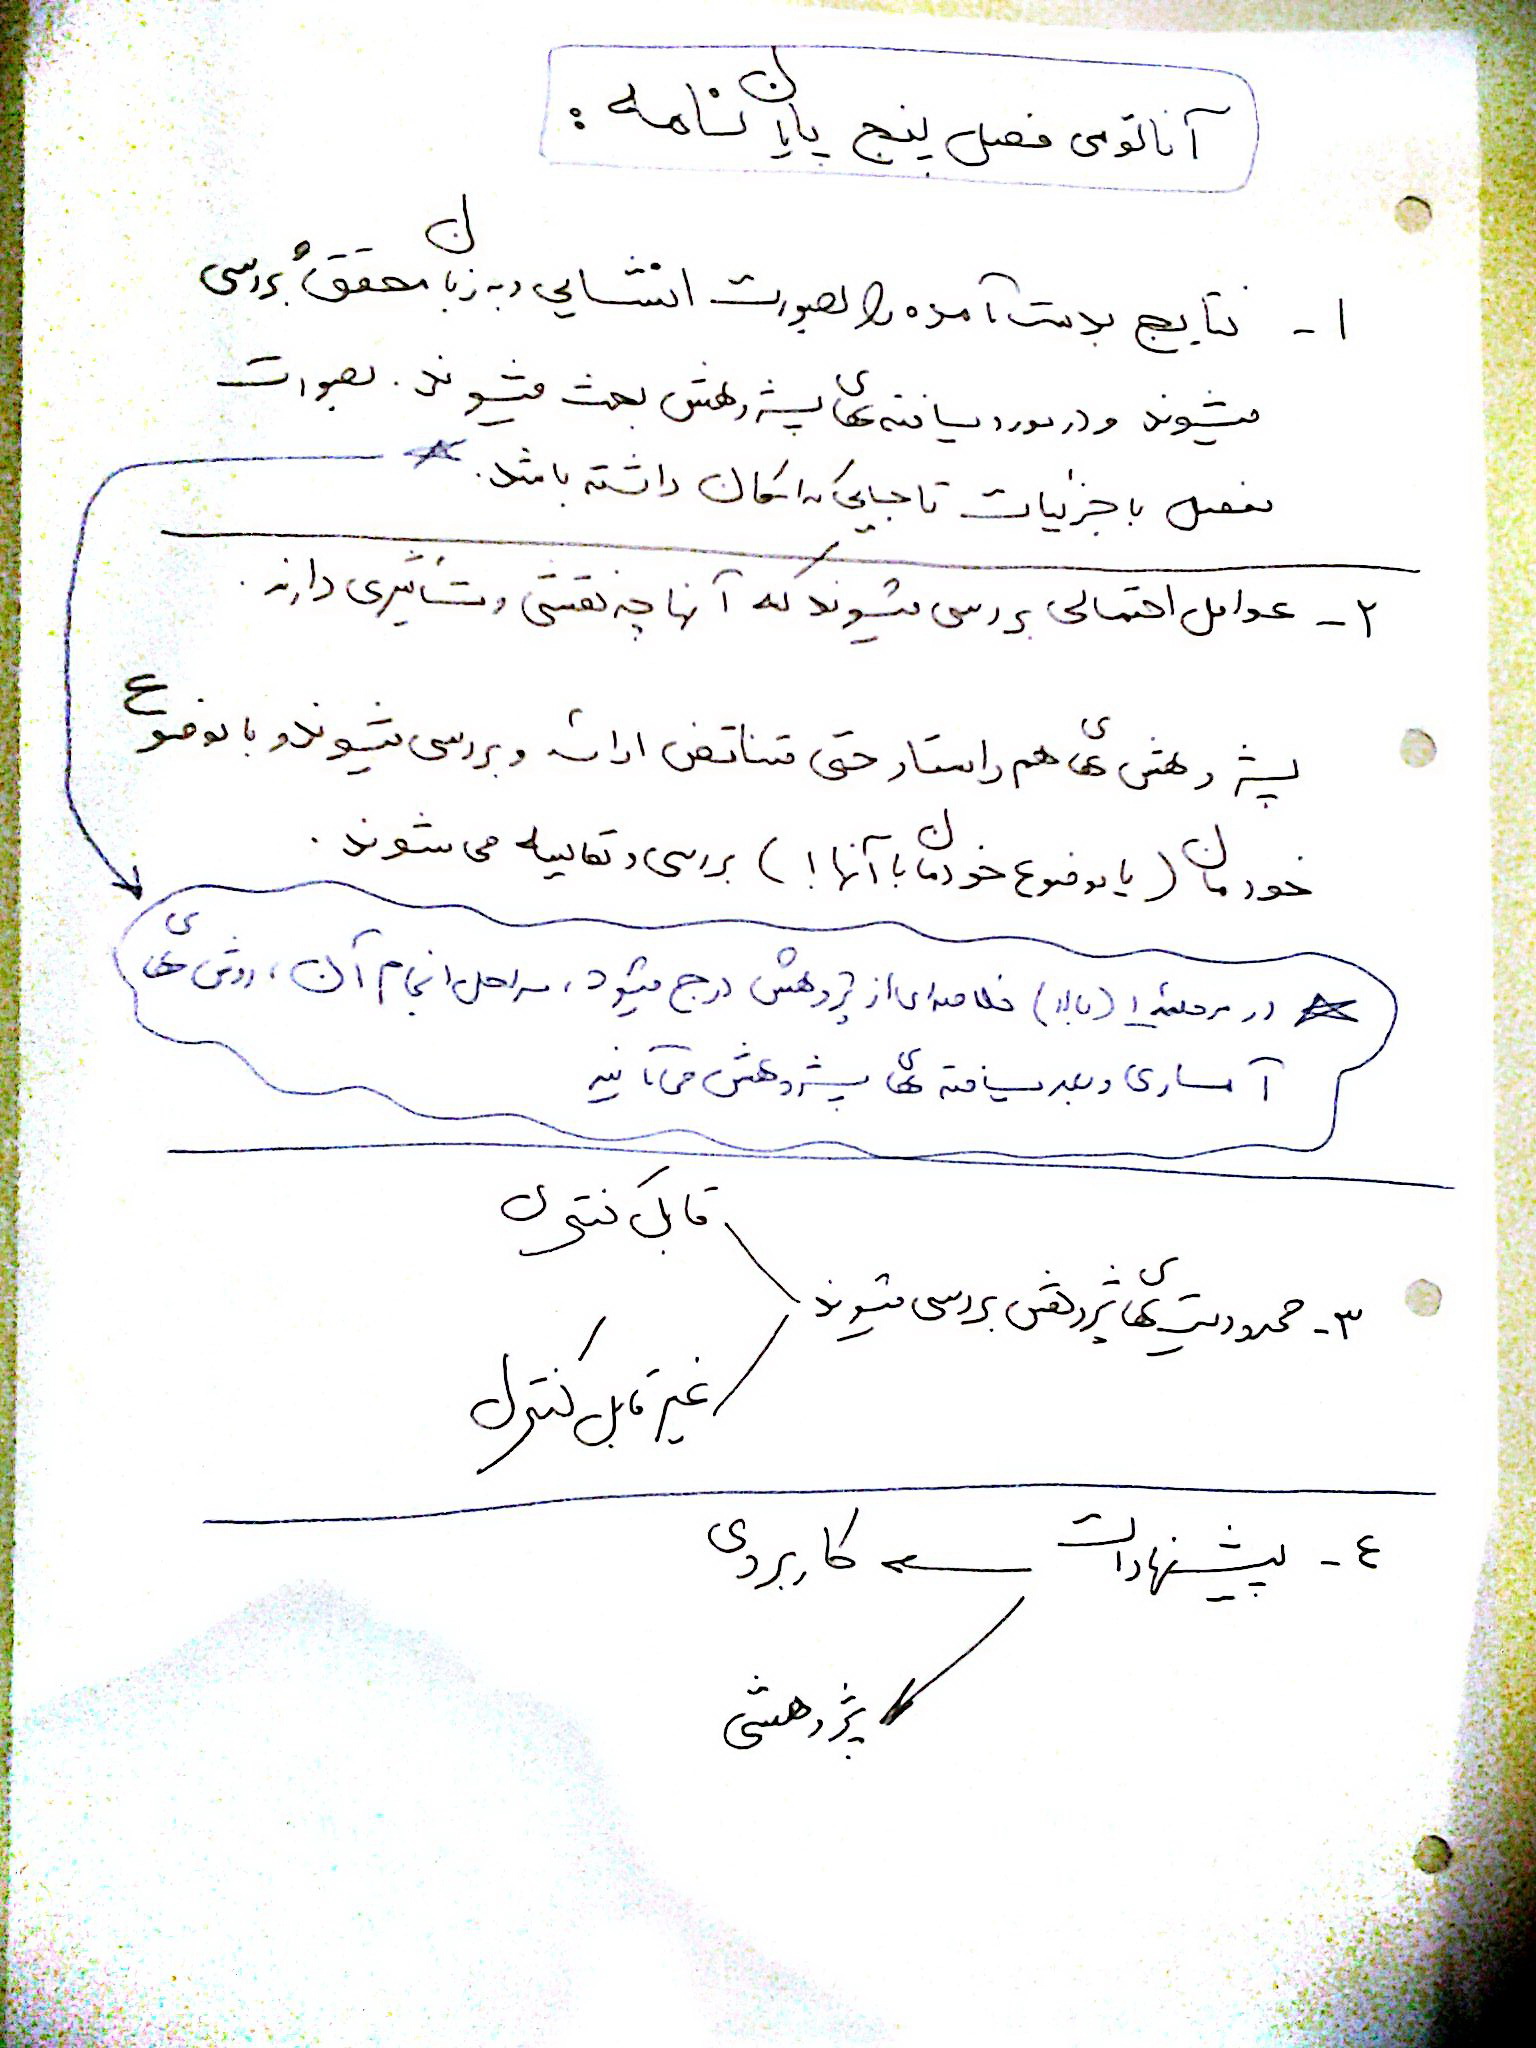 آناتومی فصل پنج پایان نامه :
۱- نتایج بدست آمده را بصورت انشایی و به زبان محقق بررسی
میشوند و در مورد یافته های پژوهش بحث میشوند. بصورت
مفصل با جزئیات تا جایی که امکان داشته باشد.
۲- عوامل احتمالی بررسی میشوند که آنها چه نقشی و تأثیری دارند.
پژوهش های هم راستا و حتی متناقض ارائه و بررسی میشوند و با موضوع
خودمان (یا موضوع خودمان با آنها!) بررسی و مقایسه می شوند.
در مرحله ۱ (بالا) خلاصه ای از پژوهش درج میشود، مراحل انجام آن، روش های
آماری و بعد یافته های پژوهش می آیند
قابل کنترل
۳- محدودیت های پژوهش بررسی میشوند
غیر قابل کنترل
۴- پیشنهادات کاربردی
پژوهشی